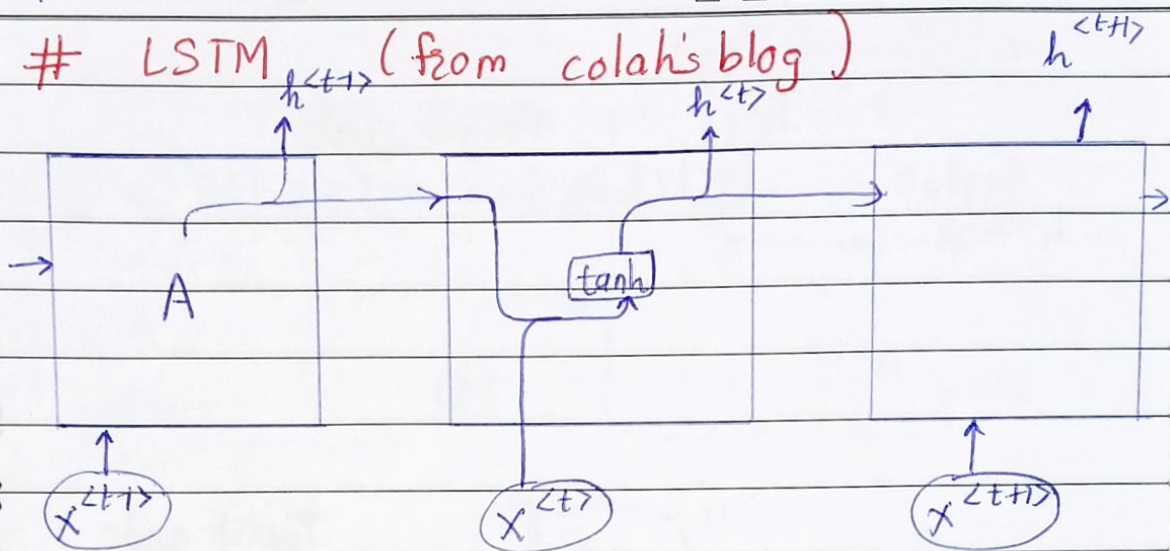 # LSTM (from colah's blog)
h<t-1> h<t> h<t+1>
tanh
A
x<t-1> x<t> x<t+1>